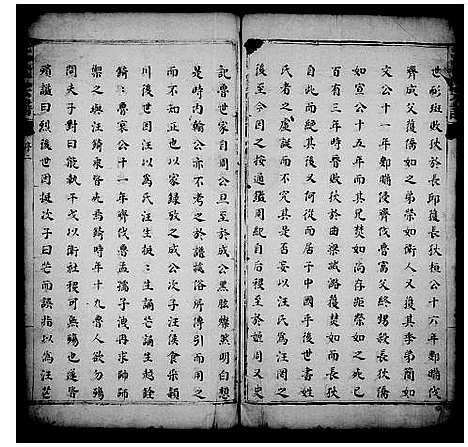 世彤班敗狄於長邱獲長狄桓公十六年鄋瞞伐
齊成父獲僑如之弟榮如衛人又獲其季弟簡如
文公十一年鄋瞞侵齊伐魯富父終甥殺長狄僑
如宣公十五年而其兄焚如尚存距榮如之死已
百有三年時晉敗狄於曲梁滅潞獲焚如而長狄
自此而絕其後又何從而居于中國乎後世書姓
氏者之虛誕而不究其是否妄以汪氏為汪罔之
後至今因之按通鑑周紀自后稷至於赧周又史
記魯世家自周公旦至於成公黑肱燦黑明白想
是時內翰公亦不考之於譜議俗所傳引而用之
而不知正也以家錄攷之成公次子汪侯食采潁
川後世因汪以為氏汪生挺挺生誦芒誦生越銓
錡魯哀公十一年齊伐魯孟孺子洩冉求帥師
禦之與汪錡乘皆死焉錡時年十九魯人欲勿殤
問夫子對曰能執干戈以衛社稷可無殤也遂皆
殯諡曰烈後世因挺次子曰芒而誤指以為汪芒